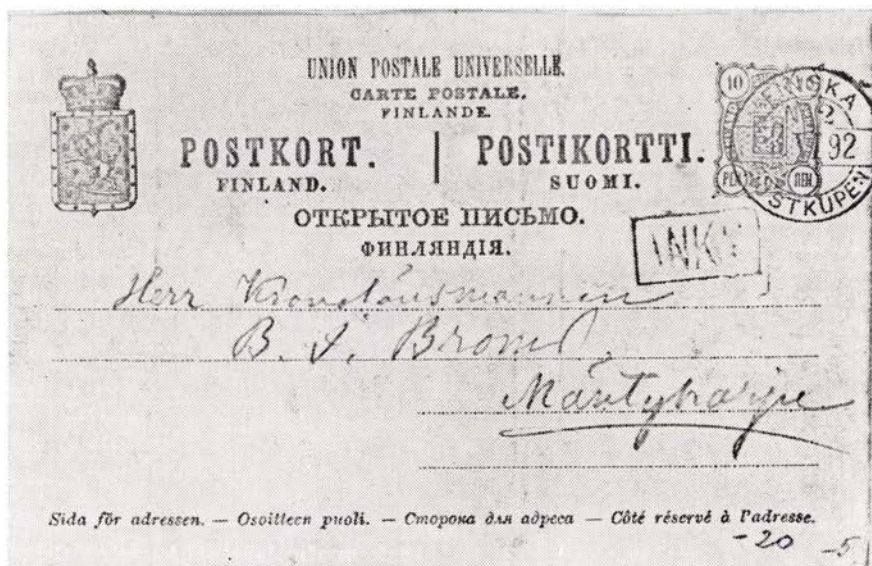 UNION POSTALE UNIVERSELLE.
CARTE POSTALE.
FINLANDE.
POSTKORT. | POSTIKORTTI.
FINLAND. SUOMI.
ОТКРЫТОЕ ПИСЬМО.
ФИНЛЯНДІЯ.
10
92
POSTKUPEN
PEN
ПЕН
INK
Herr Kronolänsmannen
B. Broms,
Mäntyharju
Sida för adressen. — Osoitteen puoli. — Сторона для адреса — Côté réservé à l'adresse.
-20 -5